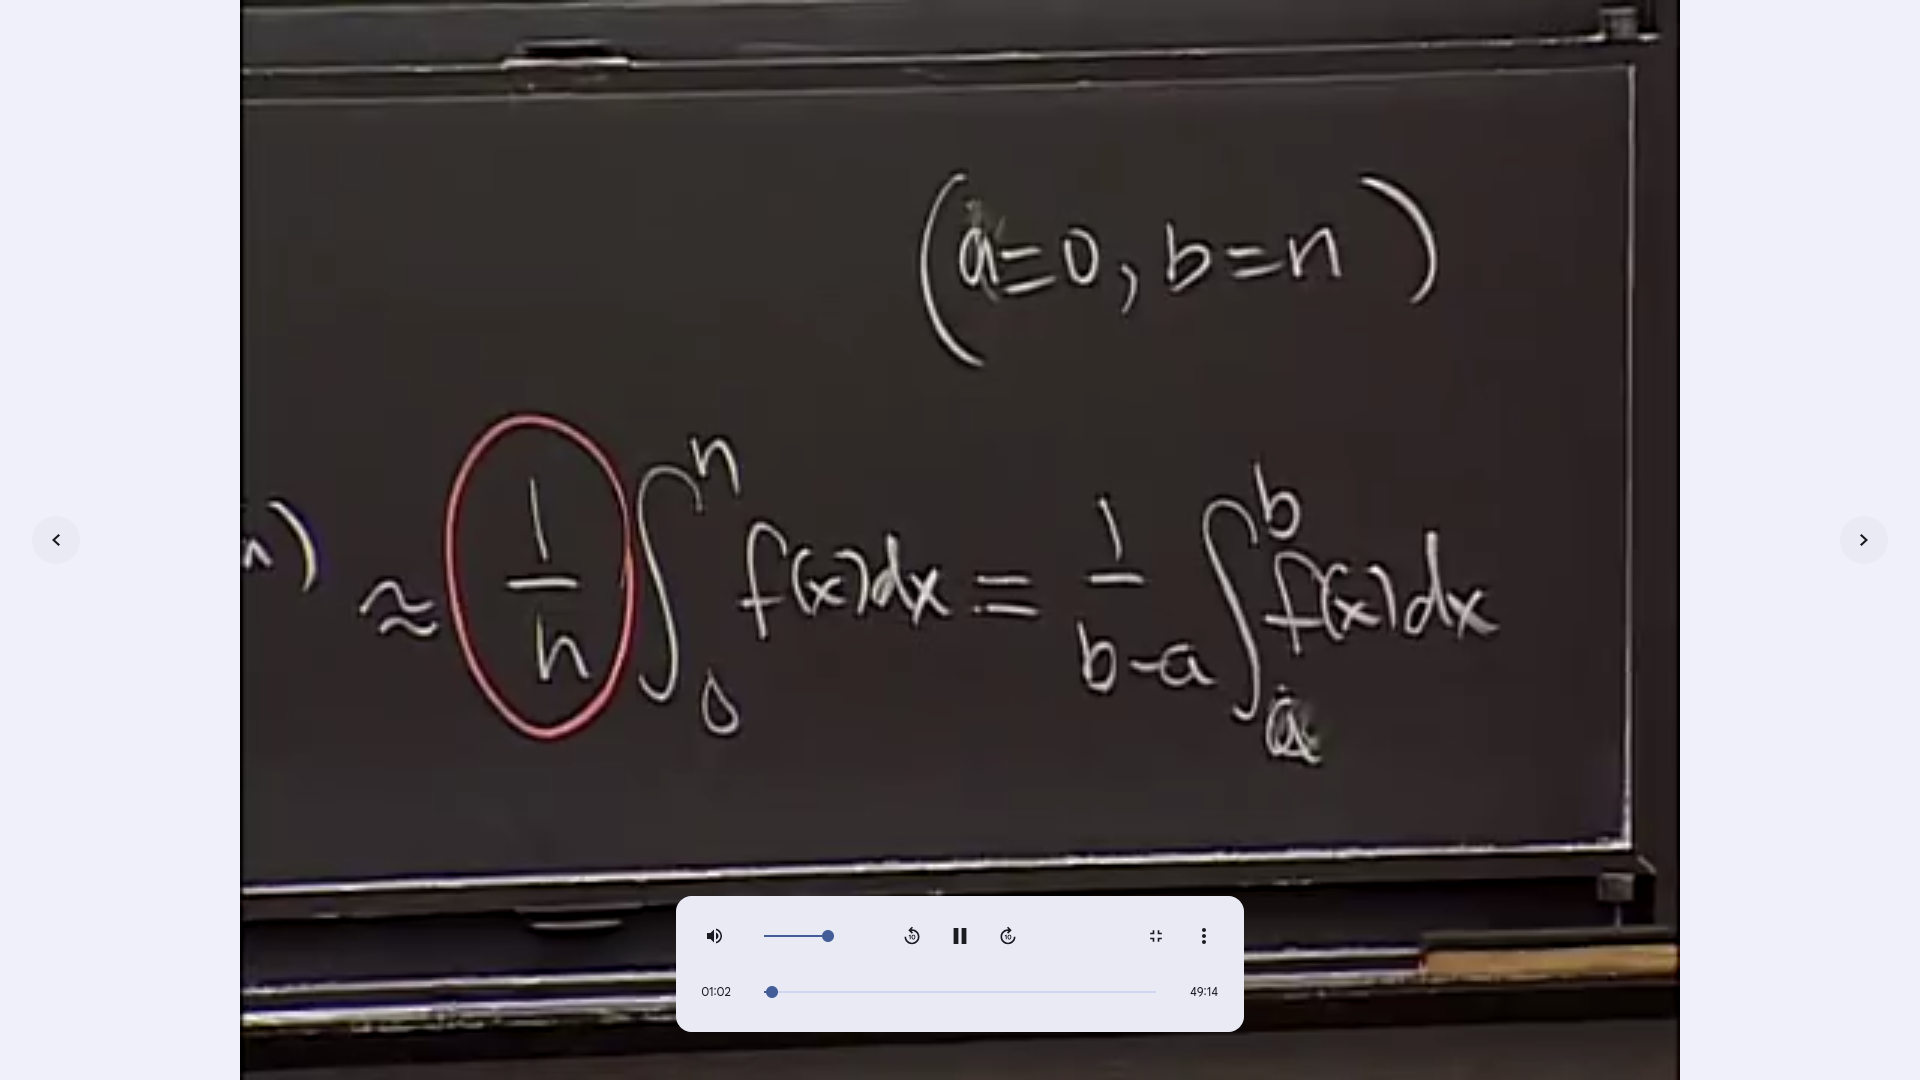 (a=0, b=n)
n) ≈ 1/n ∫₀ⁿ f(x)dx = 1/(b-a) ∫ₐᵇ f(x)dx
10
10
01:02
49:14